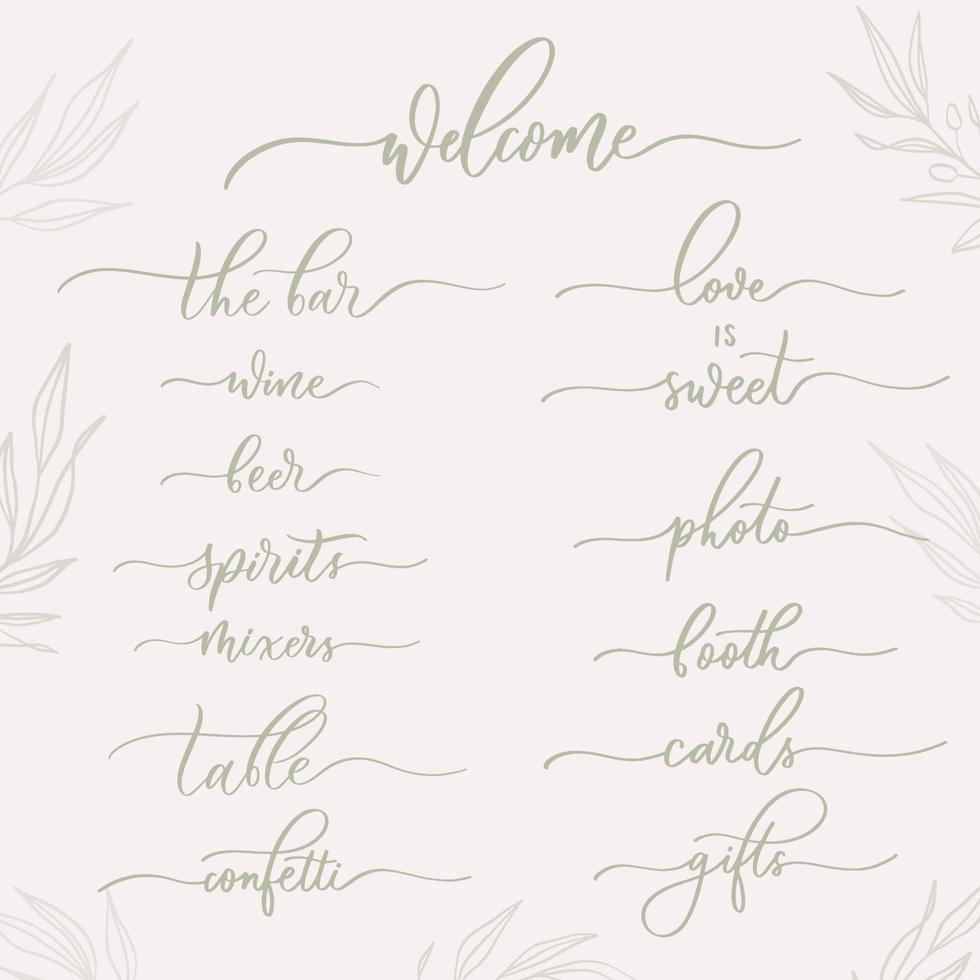 welcome
the bar
wine
beer
spirits
mixers
table
confetti
love
IS
sweet
photo
booth
cards
gifts